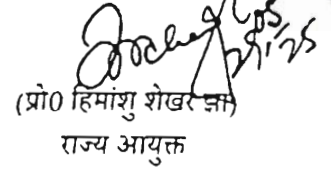 (प्रो0 हिमांशु शेखर झा)
राज्य आयुक्त